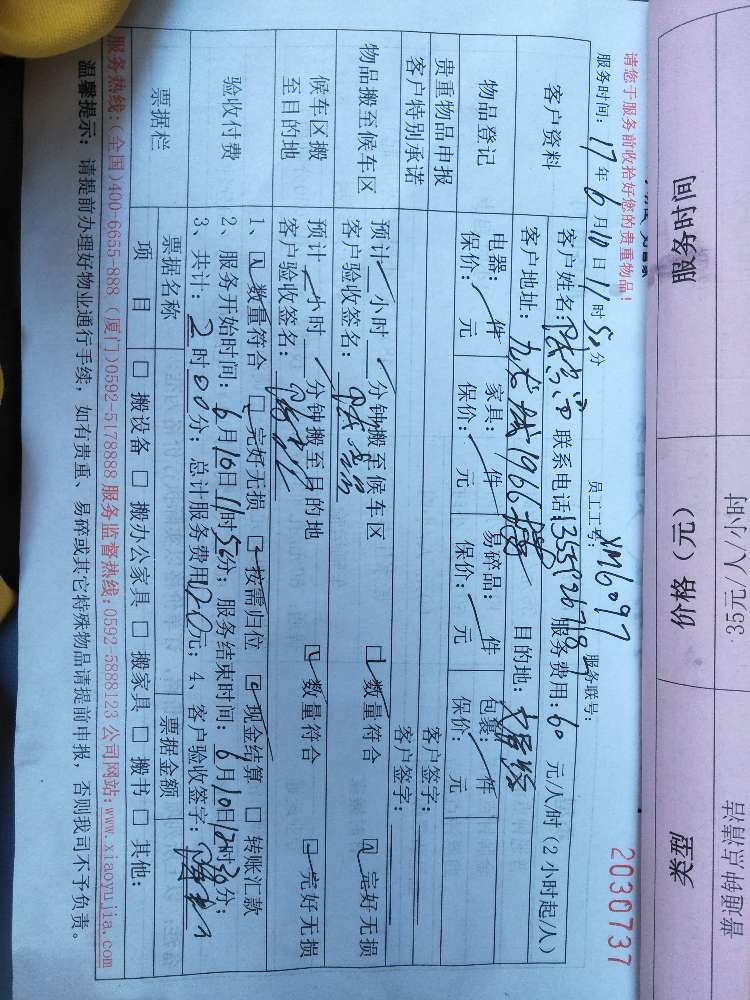 服务时间
价格（元）
类型
35元/人/小时
普通钟点清洁
2030737
请您于服务前收拾好您的贵重物品!
服务时间: 17年6月10日11时50分 员工工号: XM6097 服务联号:
客户资料
客户姓名: 联系电话: 服务费用: 60 元/人/时(2小时起/人)
客户地址: 九龙城1966 目的地:
物品登记
电器: 件 家具: 件 易碎品: 件 包裹: 件
保价: 元 保价: 元 保价: 元 保价: 元
贵重物品申报 客户签字:
客户特别承诺 客户签字:
物品搬至候车区
预计 小时 分钟搬至候车区 数量符合 完好无损
客户验收签名:
候车区搬至目的地
预计 小时 分钟搬至目的地 数量符合 完好无损
客户验收签名:
验收付费
1、 数量符合 完好无损 按需归位 现金结算 □ 转账汇款
2、服务开始时间: 6月10日11时50分; 服务结束时间: 6月10日 时 分;
3、共计: 2时00分; 总计服务费用 元; 4、客户验收签字:
票据栏
票据名称 票据金额
项 目 □ 搬设备 □ 搬办公家具 □ 搬家具 □ 搬书 □ 其他:
服务热线:(全国)400-6655-888 (厦门)0592-5178888 服务监督热线:0592-5888123 公司网站:www.xiaoyujia.com
温馨提示: 请提前办理好物业通行手续, 如有贵重、易碎或其它特殊物品请提前申报, 否则我司不予负责。